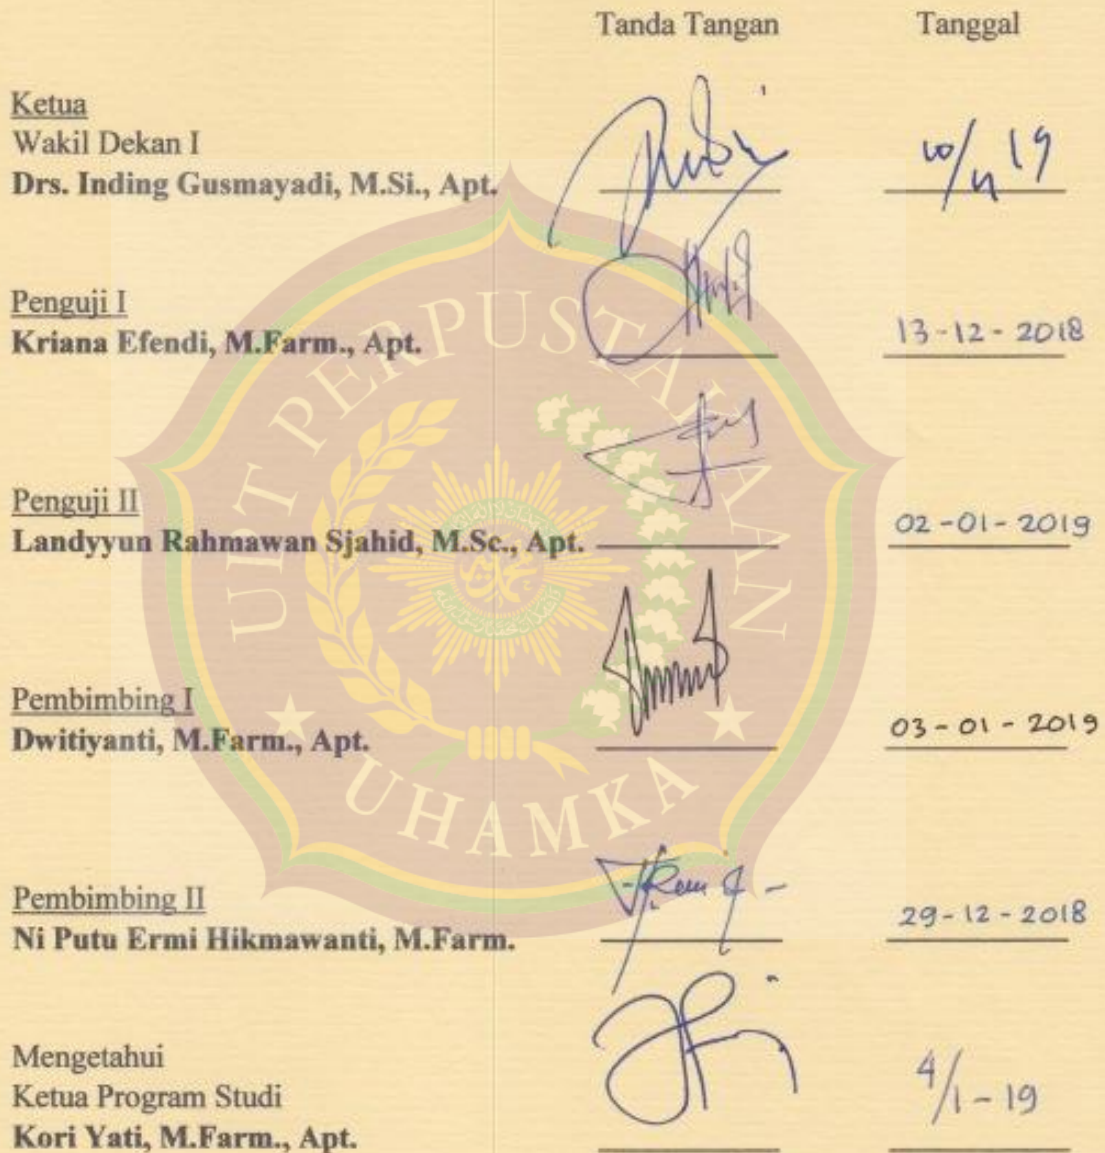 Tanda Tangan Tanggal
Ketua
Wakil Dekan I
Drs. Inding Gusmayadi, M.Si., Apt.
Penguji I
Kriana Efendi, M.Farm., Apt. 13-12-2018
Penguji II
Landyyun Rahmawan Sjahid, M.Sc., Apt. 02-01-2019
Pembimbing I
Dwitiyanti, M.Farm., Apt. 03-01-2019
Pembimbing II
Ni Putu Ermi Hikmawanti, M.Farm. 29-12-2018
Mengetahui
Ketua Program Studi
Kori Yati, M.Farm., Apt. 4/1-19
UPT PERPUSTAKAAN
UHAMKA